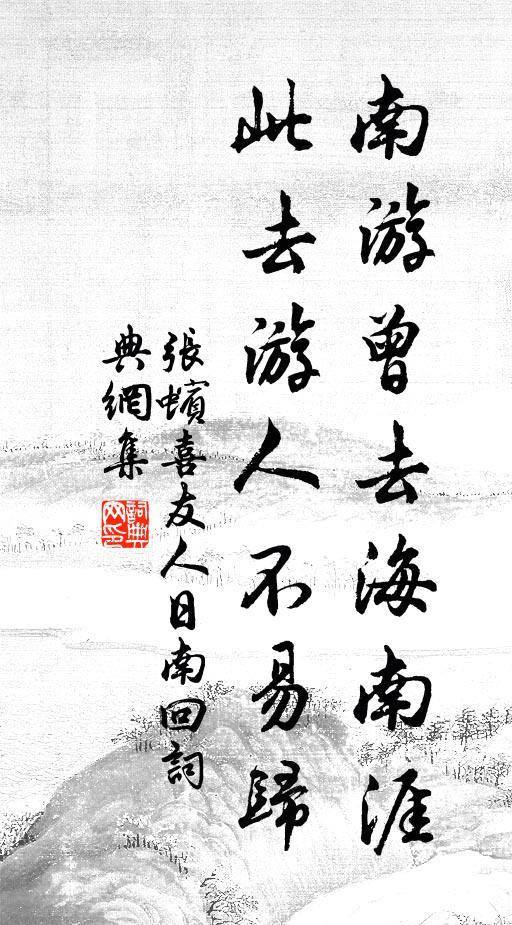 南游曾去海南涯
此去游人不易歸
張蠙喜友人日南回詞
典網集
詞典網印